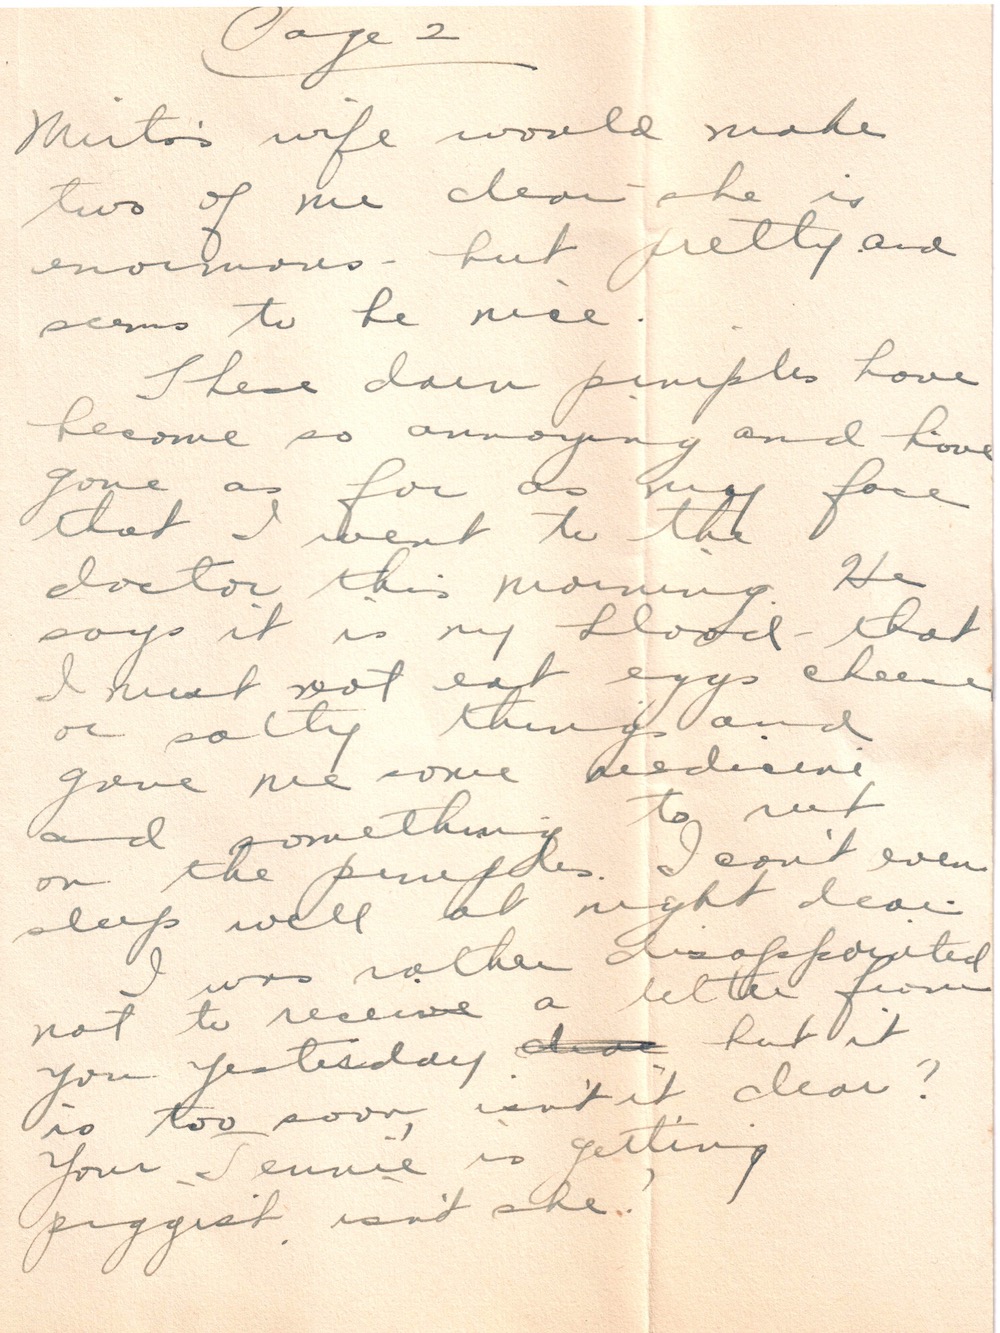 Page 2
Mirto's wife would make
two of me dear - she is
enormous - but pretty and
seems to be nice.
These darn pimples have
become so annoying and have
gone as far as my face
that I went to the
doctor this morning. He
says it is my blood - that
I must not eat eggs cheese
or salty things and
gave me some medicine
and something to rub
on the pimples. I can't even
sleep well at night dear.
I was rather disappointed
not to receive a letter from
you yesterday dear but it
is too soon, isn't it dear?
Your Jennie is getting
piggish, isn't she?